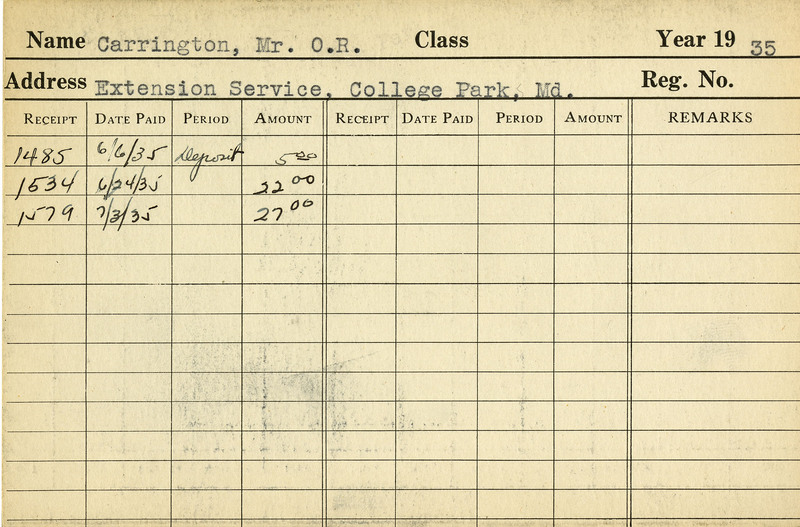 Name Carrington, Mr. O.R. Class Year 19 35
Address Extension Service, College Park, Md. Reg. No.
RECEIPT DATE PAID PERIOD AMOUNT RECEIPT DATE PAID PERIOD AMOUNT REMARKS
1485 6/6/35 Deposit 5 00
1534 6/24/35 22 00
1579 7/3/35 27 00